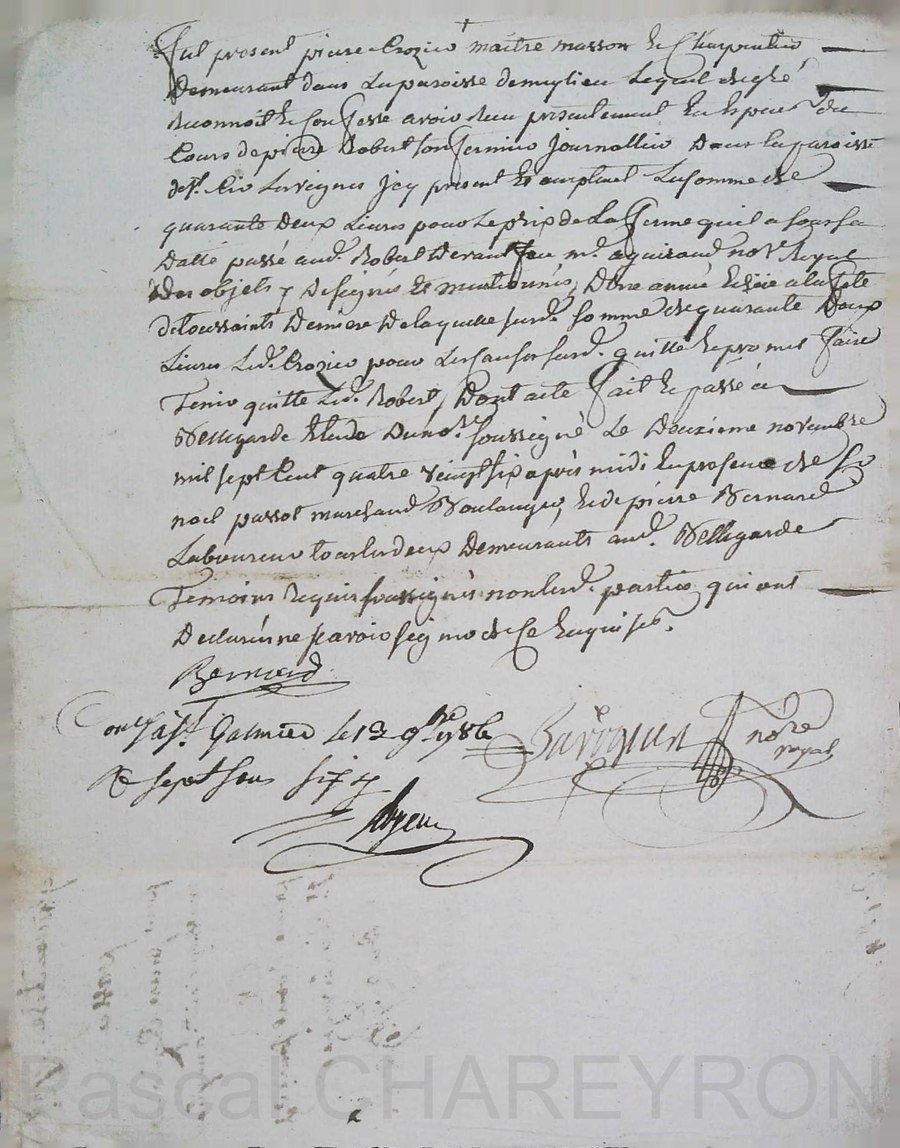 Fut present pierre Crozier maitre masson et Charpentier
Demeurant dans la paroisse de meylieu lequel de gré
reconnoit et Confesse avoir recu presentement En Espece du
Cours de pierre Robert son fermier journallier Dans la paroisse
de st. Cir les vignes Icy present et acceptant La somme de
quarante Deux Livres pour Le prix de La ferme quil a
Datté passé aud. Robert Devant feu me. aguiraud nore. Royal
Des objets y Designés et mentionnés, D'une année Echue a la fete
de toussaints Derniere De laquelle surd. somme de quarante Deux
Livres Led. Crozier pour Les Causes surd. quitte et promet faire
Tenir quitte Led. Robert, Dont acte fait et passé a
Bellegarde Etude Du nore. soussigné Le Douzieme novembre
mil sept Cent quatre vingt six après midi En presence de sr
noel passot marchand Boulanger, et de pierre Bernard
Laboureur tous les deux Demeurants aud. Bellegarde
Temoins Requis soussignés non lesd. parties qui ont
Declaré ne savoir signer de Ce Enquises.
Bernard
Conlé à st. Galmier le 13 9bre 1786
R sept sous six
nore
royal